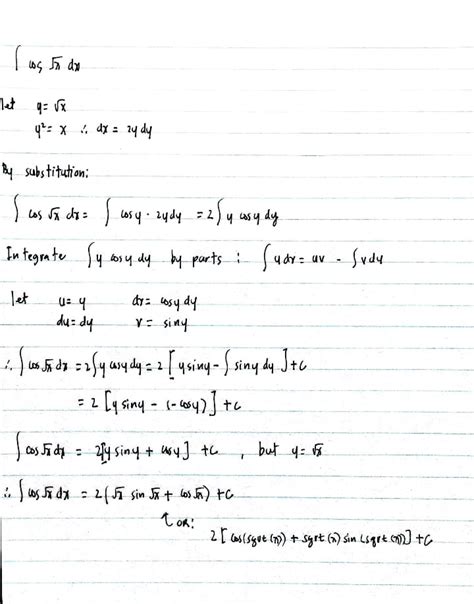 ∫ cos √x dx
let y = √x
y² = x ∴ dx = 2y dy
By substitution:
∫ cos √x dx = ∫ cosy · 2y dy = 2∫ y cosy dy
Integrate ∫ y cosy dy by parts : ∫ u dv = uv - ∫ v du
let u = y dv = cosy dy
du = dy v = siny
∴ ∫ cos √x dx = 2∫ y cosy dy = 2 [ y siny - ∫ siny dy ] + C
= 2 [ y siny - (-cosy) ] + C
∫ cos √x dx = 2[y siny + cosy] + C , but y = √x
∴ ∫ cos √x dx = 2(√x sin √x + cos √x) + C
↑ or:
2 [ cos(sqrt(x)) + sqrt(x) sin(sqrt(x)) ] + C